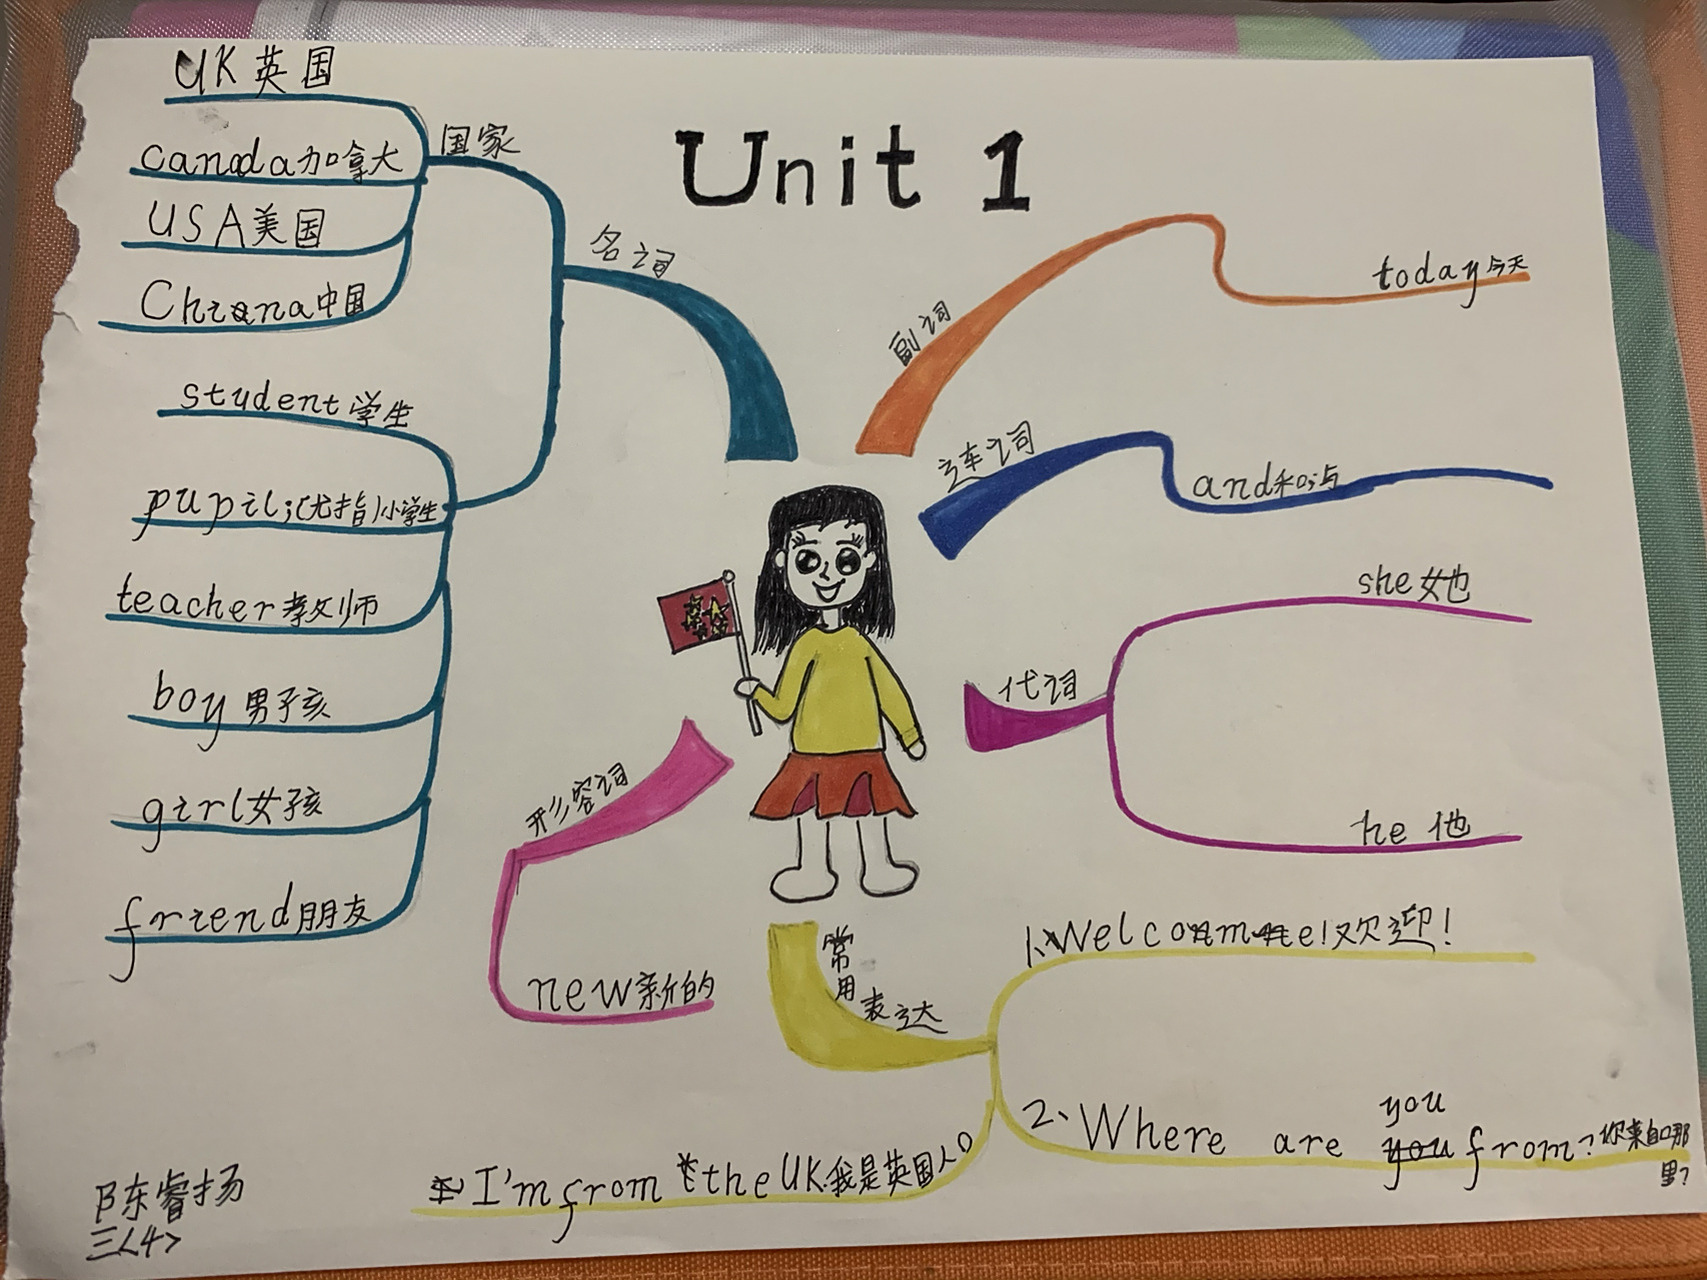 Unit 1
名词
国家
UK 英国
canada加拿大
USA美国
China中国
student学生
pupil;(尤指)小学生
teacher教师
boy 男子孩
girl女孩
friend朋友
副词
today今天
连词
and和;与
代词
she她
he 他
形容词
new新的
常用表达
1、Welcome!欢迎!
2、Where are you from?你来自哪里?
I'm from the UK.我是英国人。
陈睿扬
三<4>